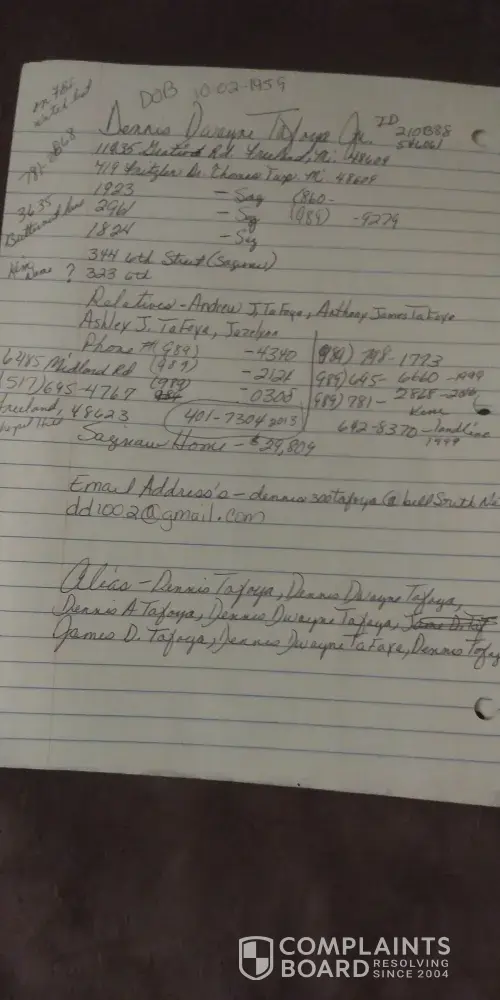 DOB 10-02-1959
Dennis Dwayne Tafoya Jr. ID 210B88
11935 Rd. Freeland, Mi. 48609
419 Dr. Thomas Twp. Mi. 48609
781-2868
1923 - Sag (860-
3635 2961 - Sg (989) -9279
1824 - Sg
344 6th Street (Saginaw)
? 323 6th
Relatives - Andrew J, Tafoya, Anthony James Tafoya
Ashley J. Tafoya,
Phone # (989) -4340 (989) 798-1773
6485 Midland Rd (989) -2121 (989) 695-6660 -1999
(517) 695-4767 (989) -0308 (989) 781-2868
Freeland, 48623 401-7304 2013 692-8370 - landline
Saginaw Home - $39,809 1999
Email Address's - dennis300tafoya@bellSouth.Ne
dd1002@gmail.com
Alias - Dennis Tafoya, Dennis Dwayne Tafoya,
Dennis A Tafoya, Dennis Dwayne Tafoya,
James D. Tafoya, Dennis Dwayne TaFoya, Dennis Tofoy
COMPLAINTS
BOARD RESOLVING
SINCE 2004